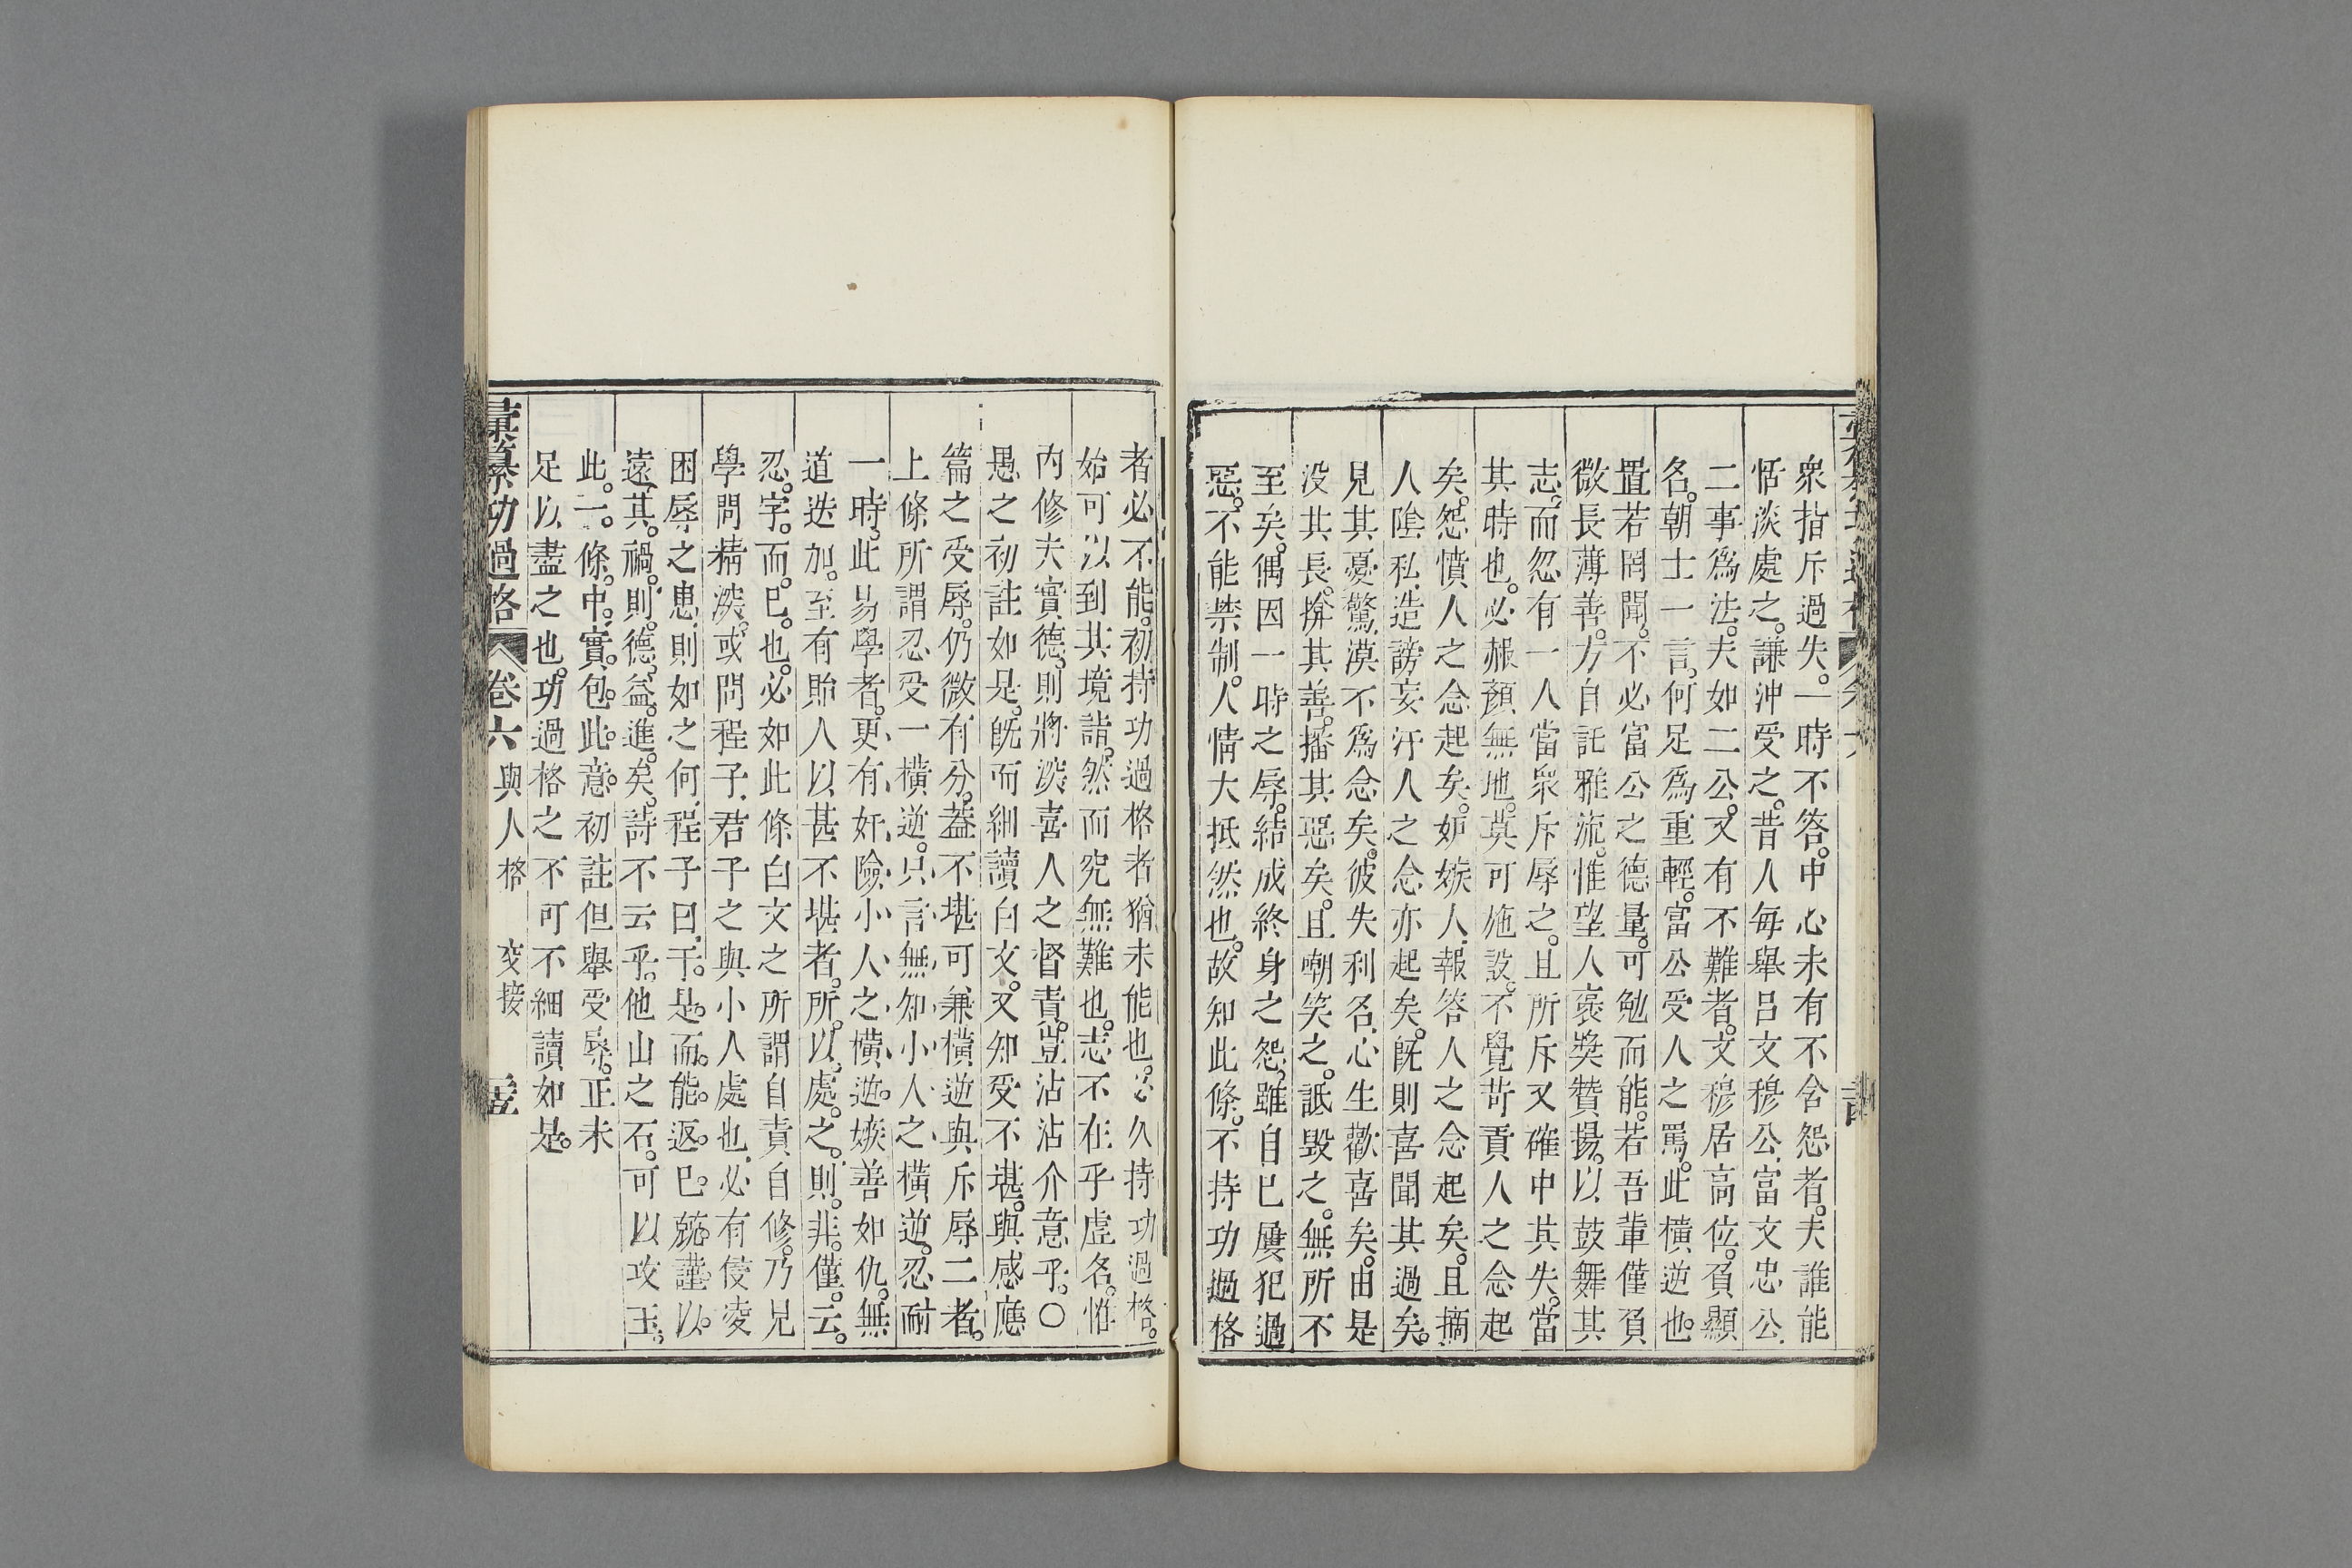 衆指斥過失。一時不答。中心未有不含怨者。夫誰能
恬淡處之。謙沖受之。昔人每舉呂文穆公富文忠公
二事爲法。夫如二公。又有不難者。文穆居高位。負顯
名。朝士一言。何足爲重輕。富公受人之罵。此橫逆也。
置若罔聞。不必富公之德量。可勉而能。若吾輩僅負
微長薄善。方自託雅流。惟望人褒奬贊揚。以鼓舞其
志。而忽有一人當衆斥辱之。且所斥又確中其失。當
其時也。必赧顏無地。莫可施設。不覺苛責人之念起
矣。怨憤人之念起矣。妒嫉人報答人之念起矣。且摘
人陰私。造謗妄汙人之念亦起矣。旣則喜聞其過矣。
見其憂驚漠不爲念矣。彼失利名心生歡喜矣。由是
没其長。揜其善。播其惡矣。且嘲笑之。詆毀之。無所不
至矣。偶因一時之辱。結成終身之怨。雖自巳屢犯過
惡。不能禁制。人情大抵然也。故知此條。不持功過格
者必不能。初持功過格者猶未能也。必久持功過格。
始可以到其境詣。然而究無難也。志不在乎虛名。惟
內修夫實德。則將深喜人之督責。豈沾沾介意乎。〇
愚之初註如是。旣而細讀白文。又知受不堪。與感應
篇之受辱。仍微有分。蓋不堪可兼橫逆與斥辱二者。
上條所謂忍受一橫逆。只言無知小人之橫逆。忍耐
一時。此易學者。更有奸險小人之橫逆。嫉善如仇。無
道迭加。至有貽人以甚不堪者。所以處之。則非僅云。
忍。字。而。巳。也。必如此條白文之所謂自責自修。乃見
學問精深。或問程子。君子之與小人處也。必有侵凌
困辱之患。則如之何。程子曰。于是。而。能。返。巳。兢。謹。以。
遠。其。禍。則。德。益。進。矣。詩不云乎。他山之石。可以攻玉。
此。一。條。中。實。包。此。意。初註但舉受辱。正未
足以盡之也。功過格之不可不細讀如是。
彙纂功過格 卷六 與人格 交接